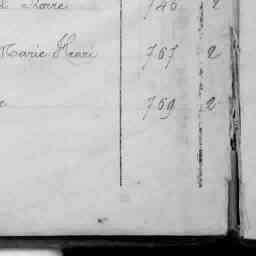 Pierre 746 2
Marie Henri 767 2
e 769 2